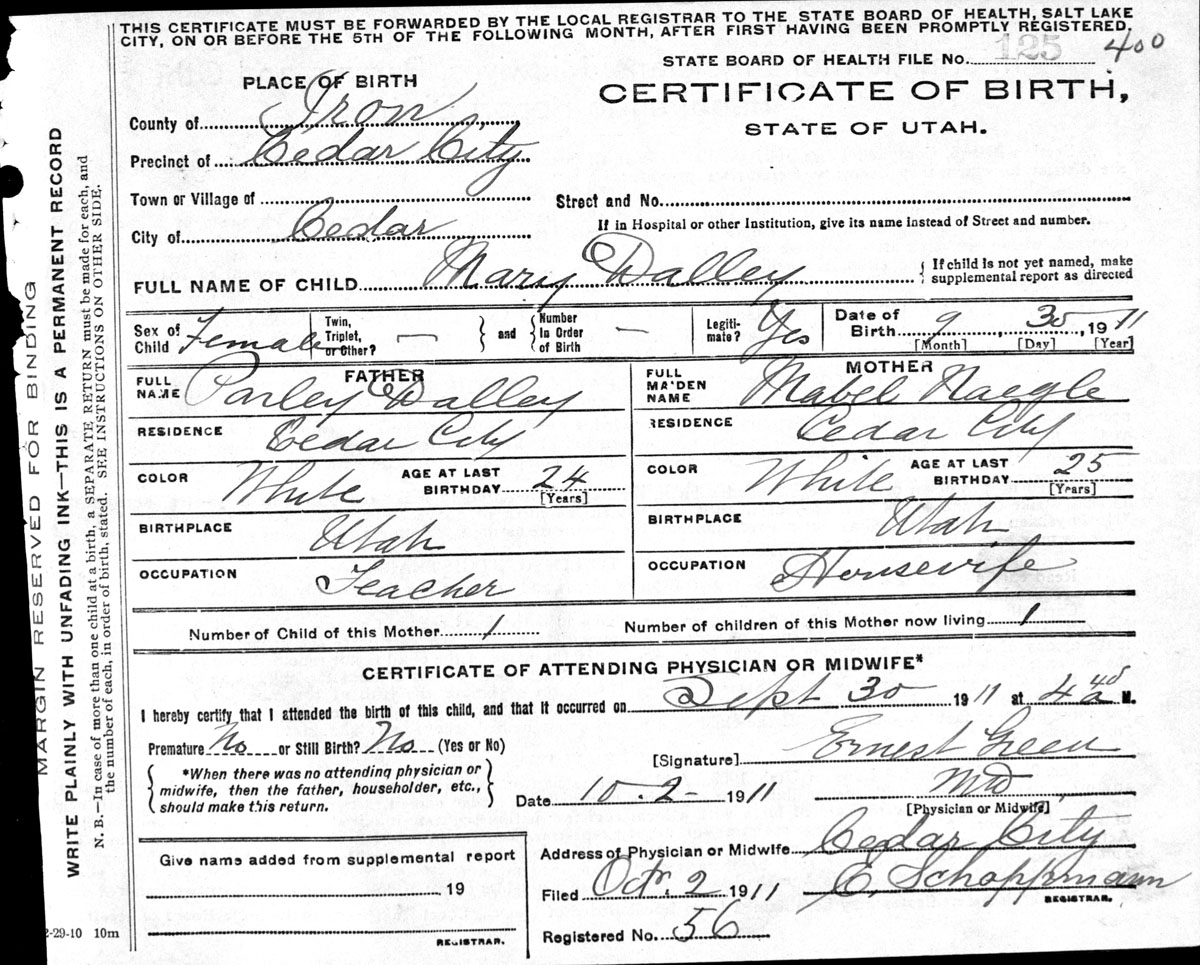 THIS CERTIFICATE MUST BE FORWARDED BY THE LOCAL REGISTRAR TO THE STATE BOARD OF HEALTH, SALT LAKE
CITY, ON OR BEFORE THE 5TH OF THE FOLLOWING MONTH, AFTER FIRST HAVING BEEN PROMPTLY REGISTERED.
STATE BOARD OF HEALTH FILE No. 125 400
PLACE OF BIRTH
CERTIFICATE OF BIRTH,
STATE OF UTAH.
County of Iron
Precinct of Cedar City
Town or Village of
Street and No.
City of Cedar
If in Hospital or other Institution, give its name instead of Street and number.
FULL NAME OF CHILD Mary Dalley
{ If child is not yet named, make
supplemental report as directed
Sex of Child Female
Twin, Triplet, or Other? —
} and {
Number In Order of Birth —
Legiti-mate? Yes
Date of Birth 9, 30, 1911
[Month] [Day] [Year]
FATHER
FULL NAME Parley Dalley
RESIDENCE Cedar City
COLOR White
AGE AT LAST BIRTHDAY 24
[Years]
BIRTHPLACE Utah
OCCUPATION Teacher
MOTHER
FULL MAIDEN NAME Mabel Naegle
RESIDENCE Cedar City
COLOR White
AGE AT LAST BIRTHDAY 25
[Years]
BIRTHPLACE Utah
OCCUPATION Housewife
Number of Child of this Mother 1 Number of children of this Mother now living 1
CERTIFICATE OF ATTENDING PHYSICIAN OR MIDWIFE*
I hereby certify that I attended the birth of this child, and that it occurred on Sept 30 1911 at 4 40 a M.
Premature No or Still Birth? No (Yes or No)
{ *When there was no attending physician or
midwife, then the father, householder, etc.,
should make this return. }
[Signature] Ernest Green
MD
[Physician or Midwife]
Date 10-2- 1911
Address of Physician or Midwife Cedar City
Filed Oct. 2 1911 E. Schoppmann
REGISTRAR.
Registered No. 56
Give name added from supplemental report
19
REGISTRAR.
MARGIN RESERVED FOR BINDING
WRITE PLAINLY WITH UNFADING INK—THIS IS A PERMANENT RECORD
N. B.—In case of more than one child at a birth, a SEPARATE RETURN must be made for each, and
the number of each, in order of birth, stated. SEE INSTRUCTIONS ON OTHER SIDE.
2-29-10 10m